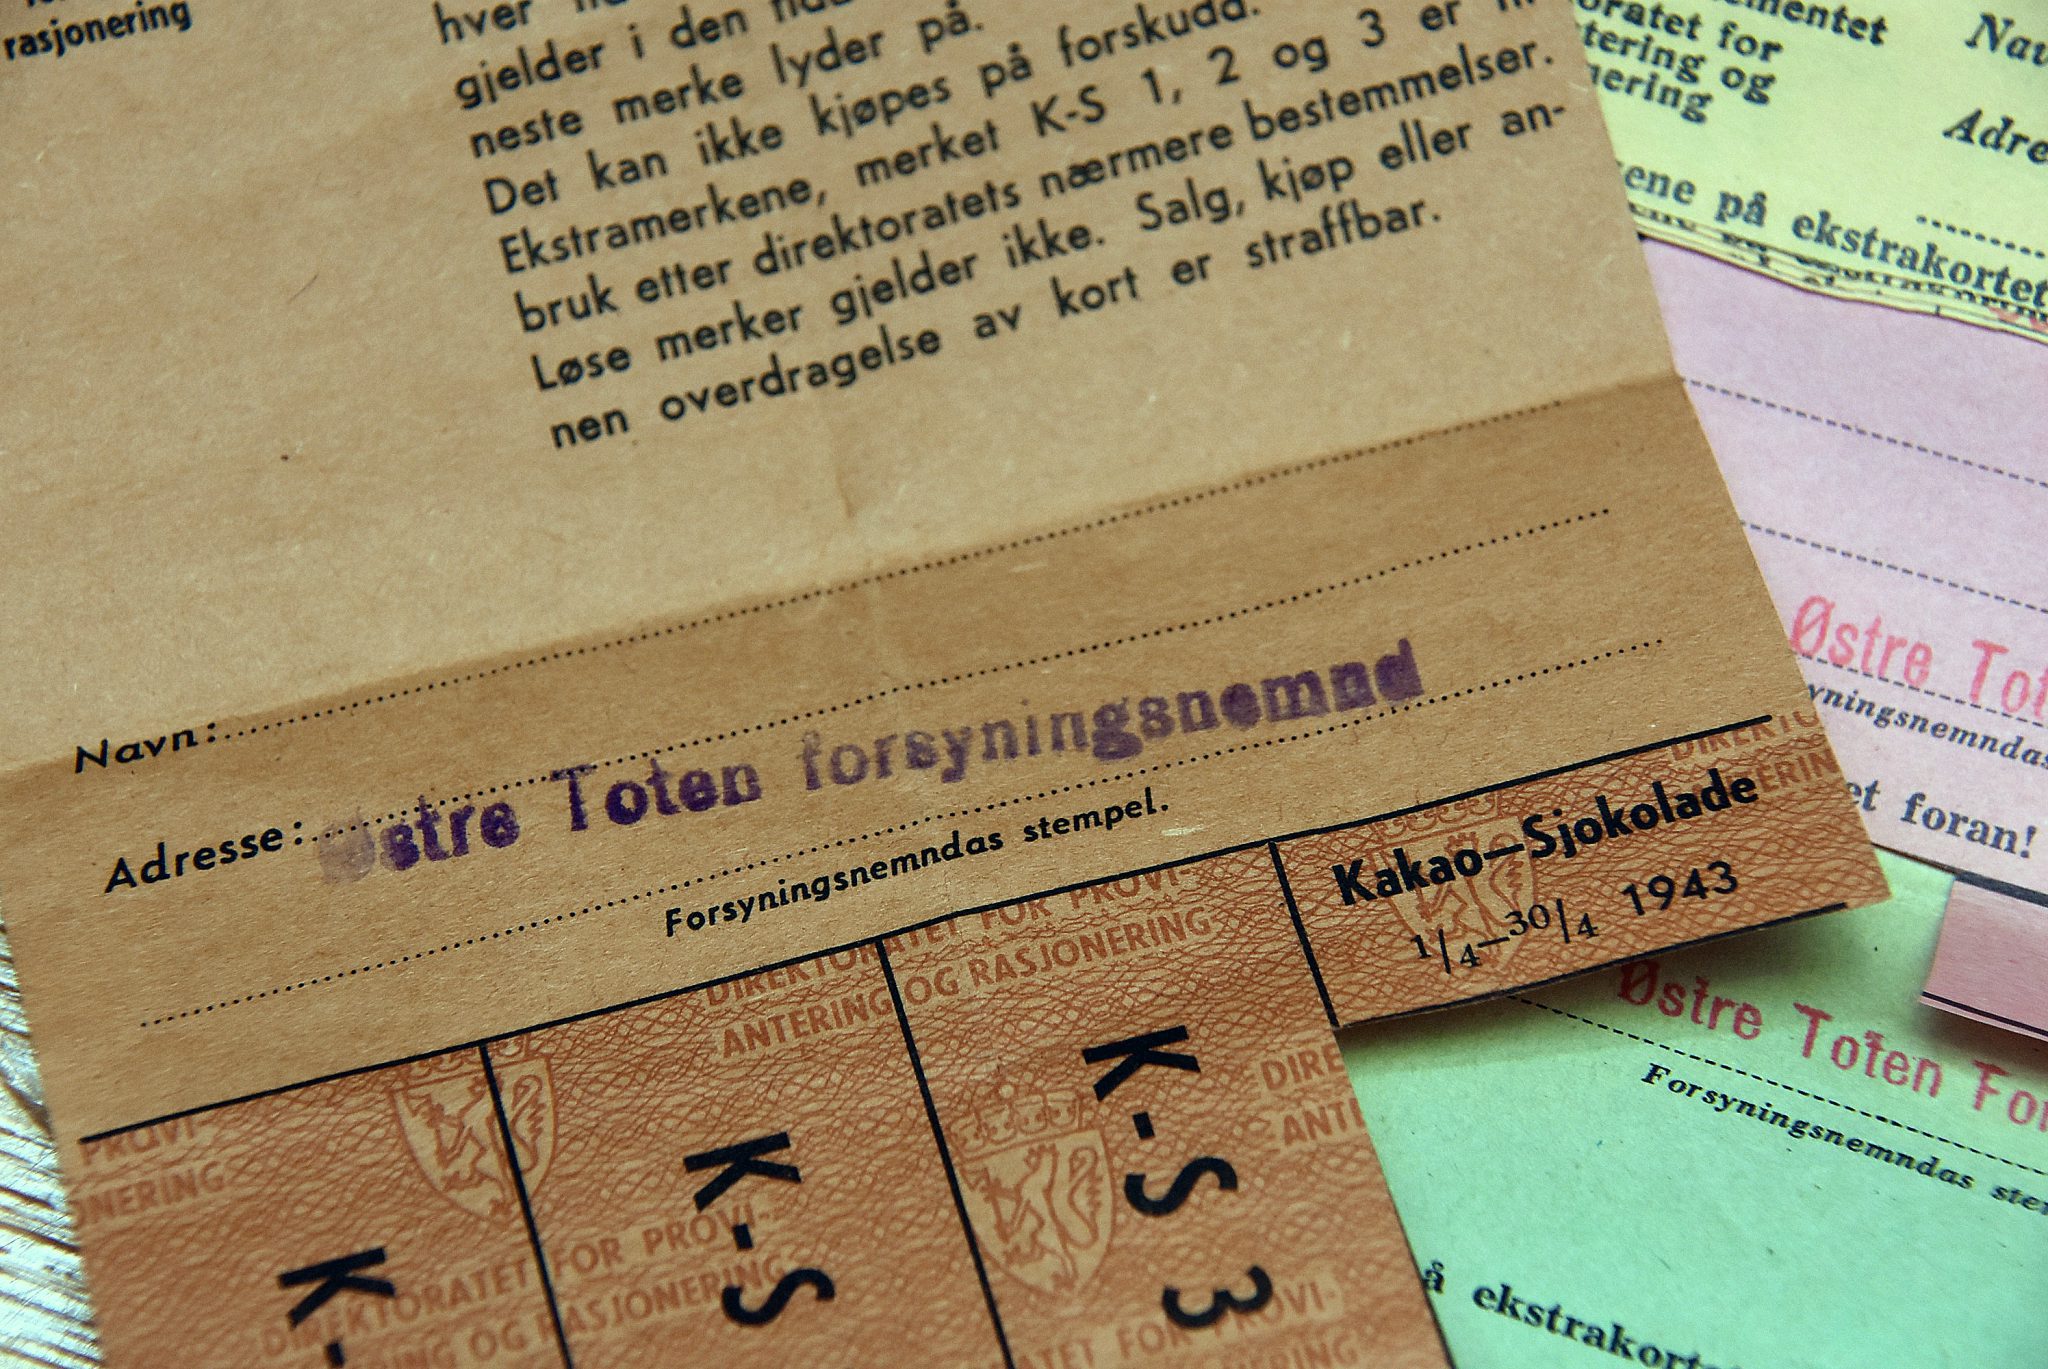 rasjonering
hver
gjelder i den
neste merke lyder på.
Det kan ikke kjøpes på forskudd.
Ekstramerkene, merket K-S 1, 2 og 3 er
bruk etter direktoratets nærmere bestemmelser.
Løse merker gjelder ikke. Salg, kjøp eller an-
nen overdragelse av kort er straffbar.
Navn:
Adresse:
Østre Toten forsyningsnemnd
Forsyningsnemndas stempel.
Kakao–Sjokolade
1/4–30/4 1943
DIREKTORATET FOR PROVI-
ANTERING OG RASJONERING
K-S 3
K-S
K-
PROVI-
ONERING
DIREKTORATET FOR PROVI-
OG RASJONERING
DIRE
ANTE
ANTERING
ementet
oratet for
tering og
nering
Nav
Adre
ene på ekstrakortet
Østre Tot
yningsnemndas
et foran!
Østre Toten For
Forsyningsnemndas ste
å ekstrakort